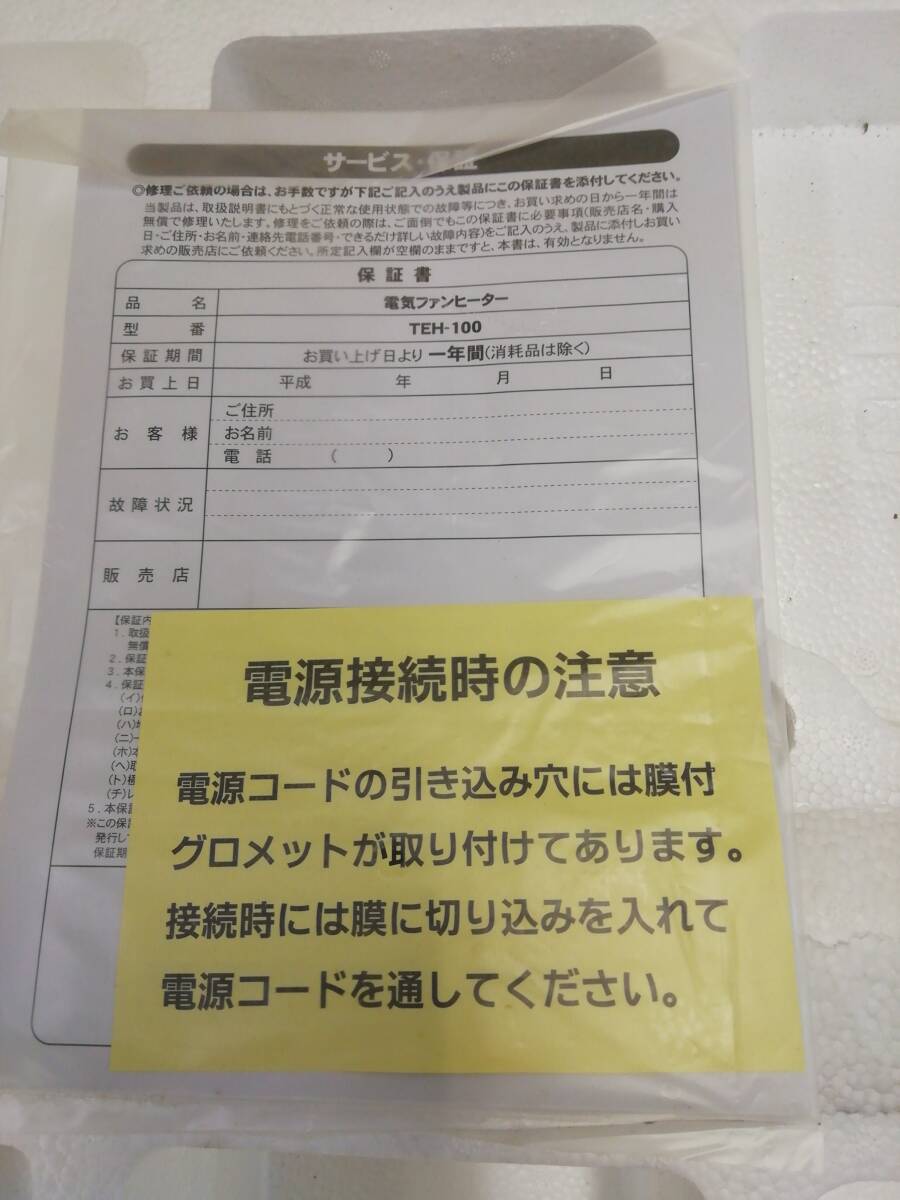 サービス・保証
◎修理ご依頼の場合は、お手数ですが下記ご記入のうえ製品にこの保証書を添付してください。
当製品は、取扱説明書にもとづく正常な使用状態での故障等につき、お買い求めの日から一年間は
無償で修理いたします。修理をご依頼の際は、ご面倒でもこの保証書に必要事項(販売店名・購入
日・ご住所・お名前・連絡先電話番号・できるだけ詳しい故障内容)をご記入のうえ、製品に添付しお買い
求めの販売店にご依頼ください。所定記入欄が空欄のままですと、本書は、有効となりません。
保証書
品名 電気ファンヒーター
型番 TEH-100
保証期間 お買い上げ日より 一年間(消耗品は除く)
お買上日 平成 年 月 日
お客様 ご住所
お名前
電話 ( )
故障状況
販売店
【保証内
1. 取扱
無償
2. 保証
3. 本保
4. 保証
(イ)
(ロ)お
(ハ)
(ニ)
(ホ)本
(ヘ)取
(ト)極
(チ)レ
5. 本保証
※この保証
発行し
保証期
電源接続時の注意
電源コードの引き込み穴には膜付
グロメットが取り付けてあります。
接続時には膜に切り込みを入れて
電源コードを通してください。